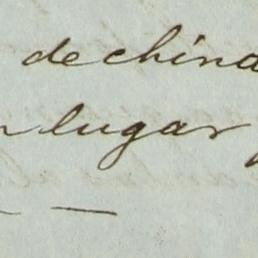 de china
lugar